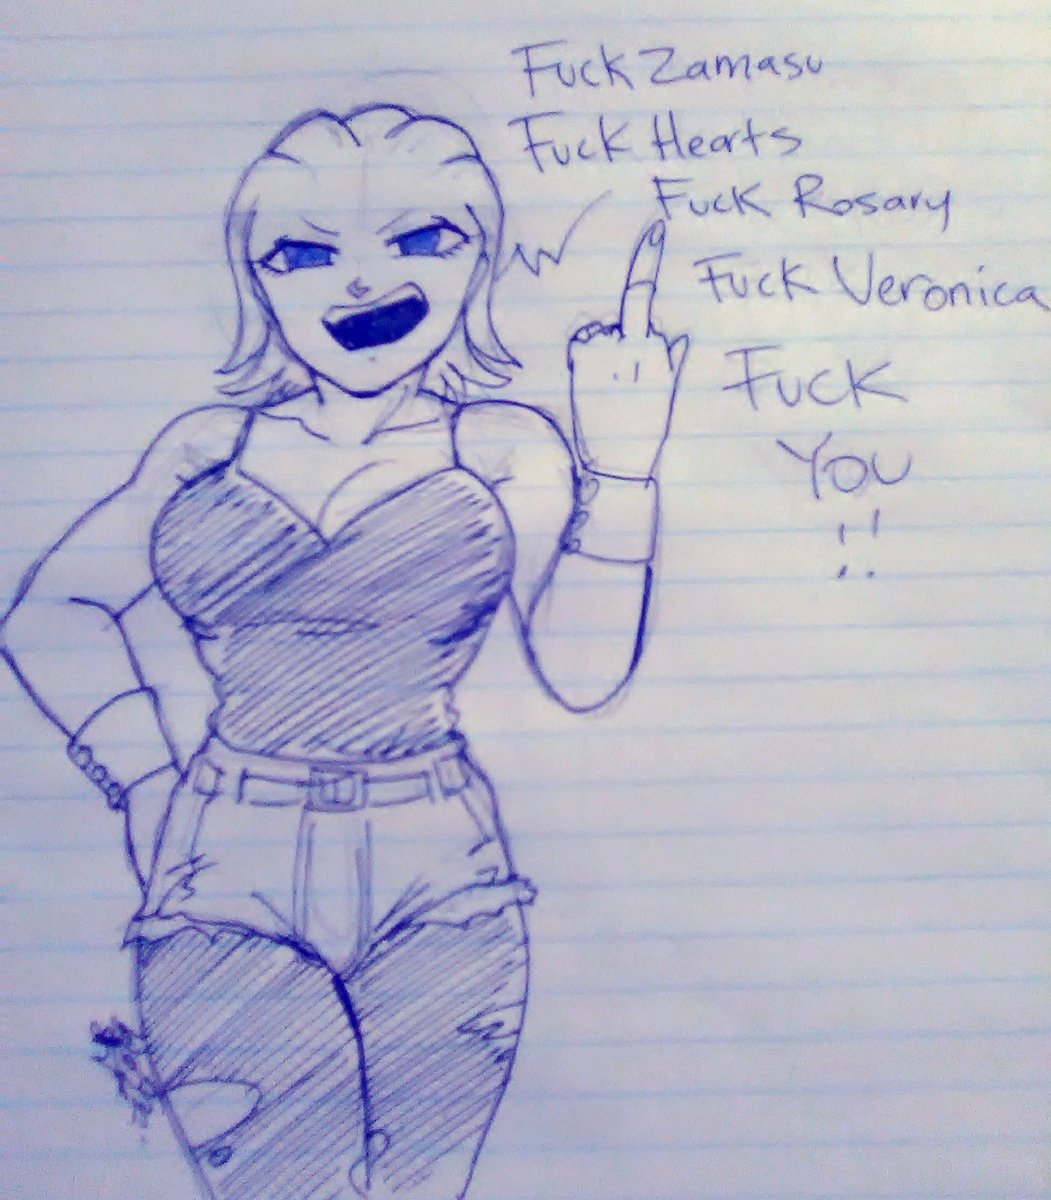 Fuck Zamasu
Fuck Hearts
Fuck Rosary
Fuck Veronica
Fuck
You
!!